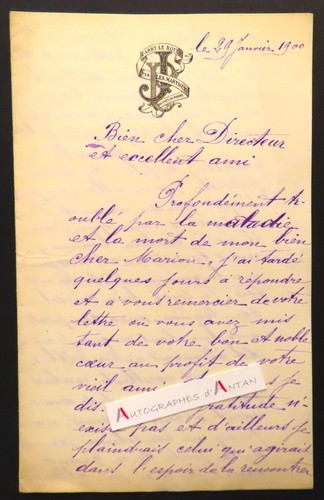 le 29 Janvier 1900
Bien cher Directeur
et excellent ami
Profondément tr-
oublé par la maladie
et la mort de mon bien
cher Marion, j'ai tardé
quelques jours à répondre
et à vous remercier de votre
lettre où vous avez mis
tant de votre bon et noble
cœur au profit de votre
vieil ami
je
dis gratitude n'-
existe pas et d'ailleurs je
plaindrais celui qui agirait
dans l'espoir de la rencontrer
Autographes d'Antan